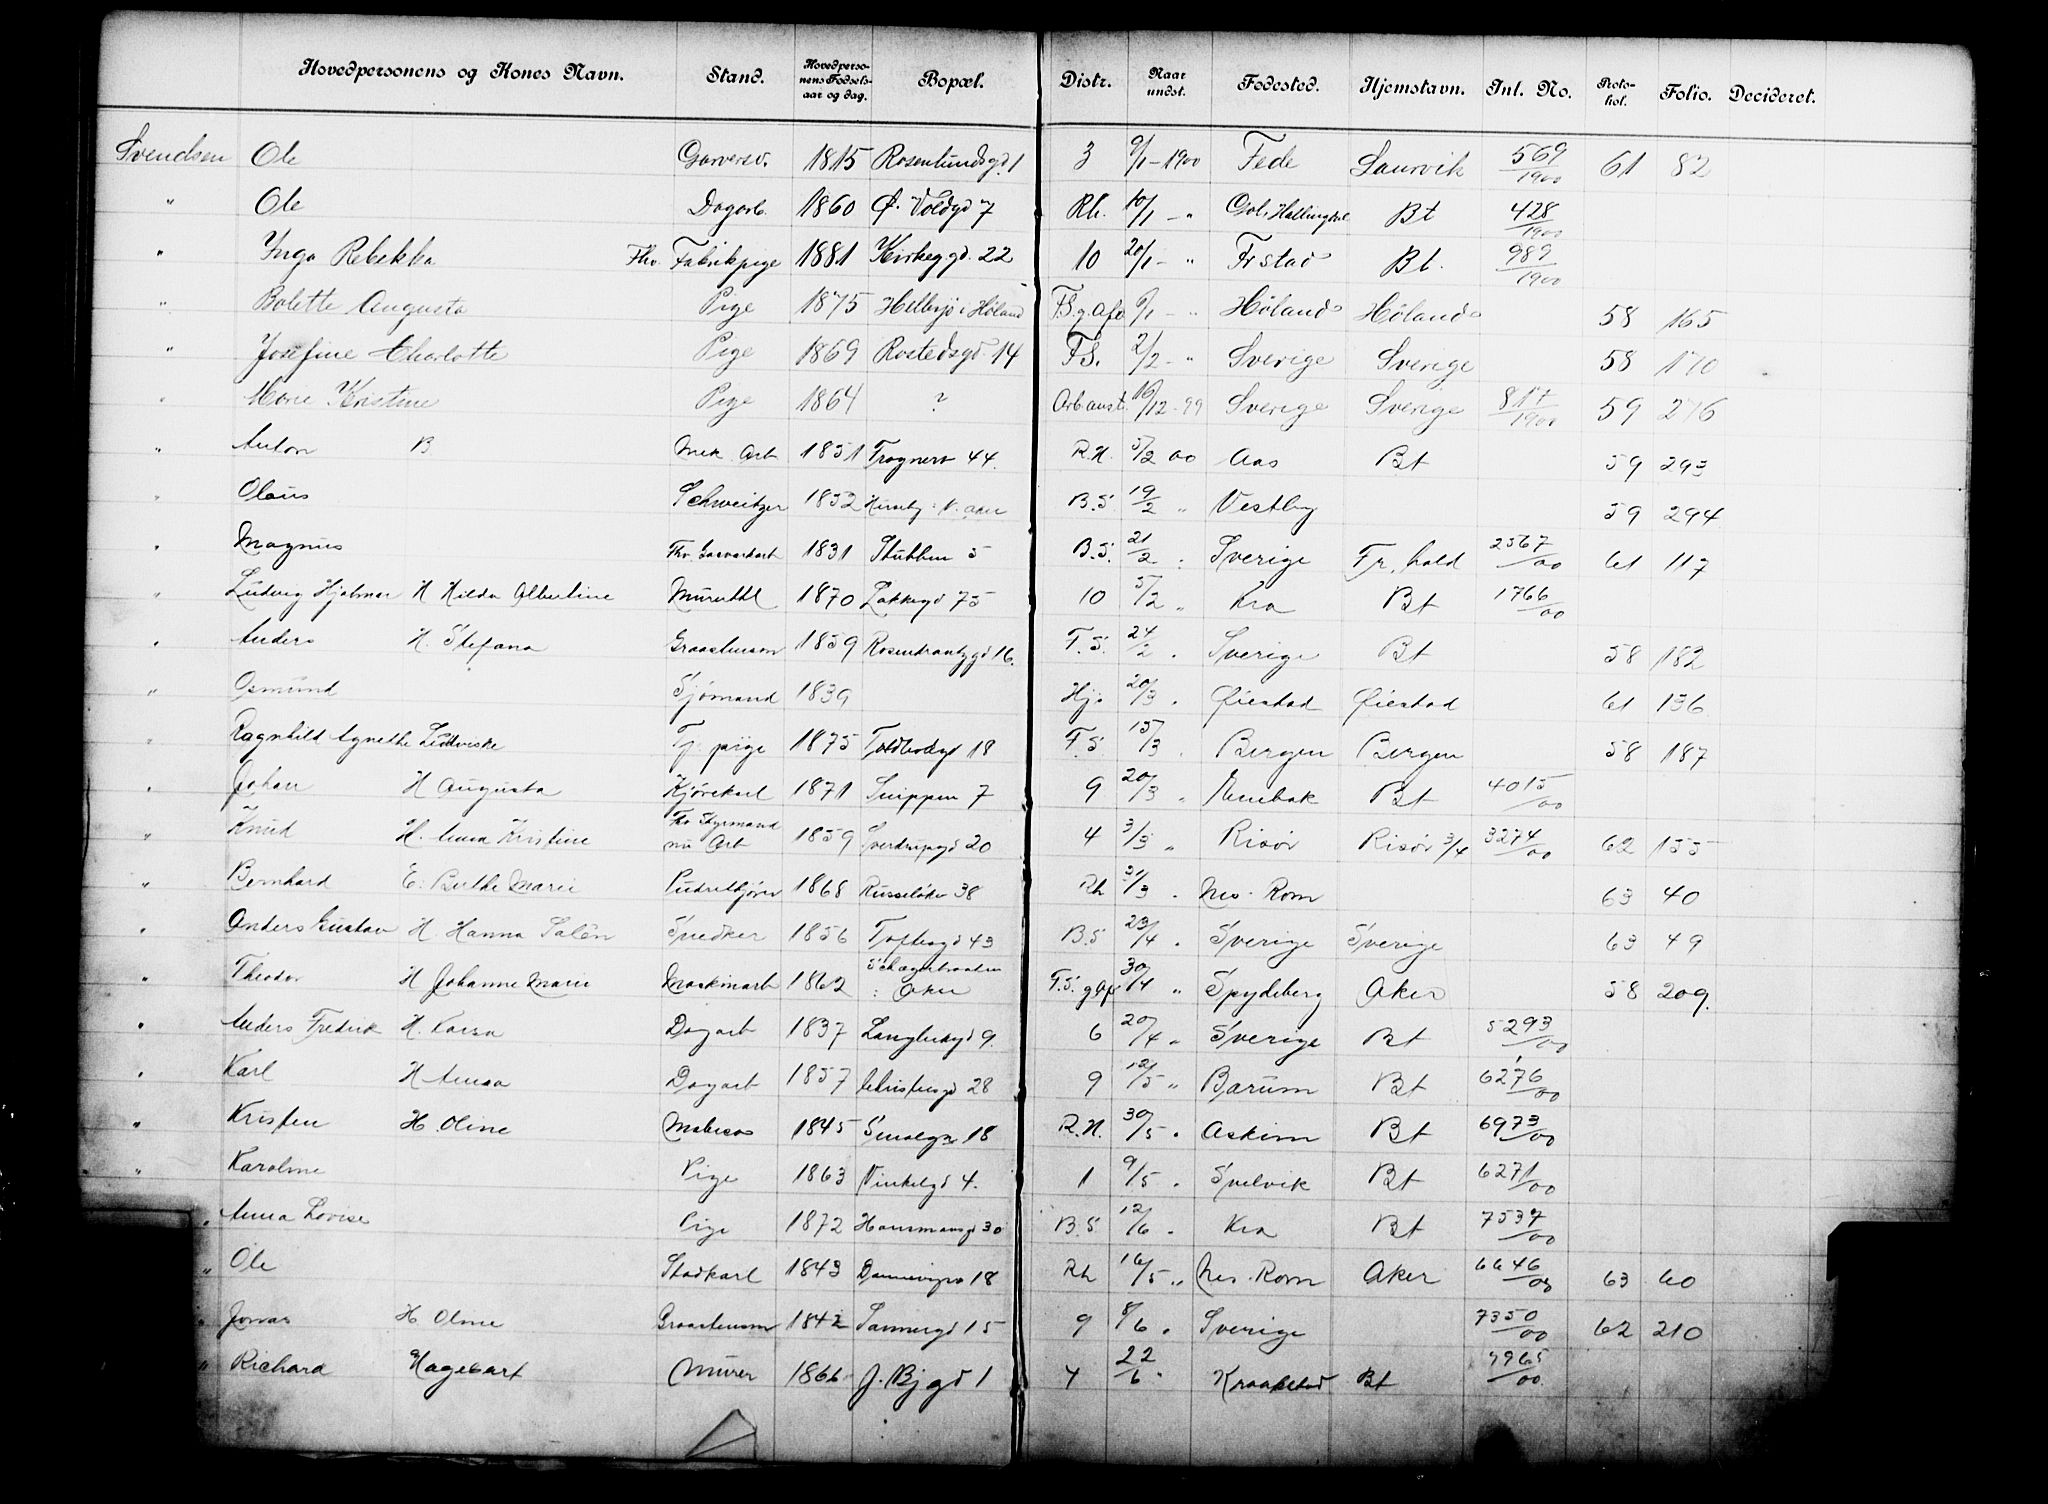 Hovedpersonens og Kones Navn. Stand. Hovedperso-nens Fødsels-aar og dag. Bopæl. Distr. Naar undst. Fødested. Hjemstavn. Int. No. Proto-kol. Folio. Decideret.
Svendsen Ole Garversv. 1815 Rosenlundsgd. 1 3 9/1-1900 Fede Laurvik 569/1900 61 82
" Ole Dagarb. 1860 Ø. Voldgd 7 Rh. 10/1 - " Gol, Hallingdal Bt 428/1900
" Inga Rebekka Fhv. Fabrikpige 1881 Kirkeggd. 22 10 20/1 - " Frstad Bt. 989/1900
" Bolette Augusta Pige 1875 Hellesjø i Høland F.S.g.Afd 6/1 - " Høland Høland 58 165
" Josefine Charlotte Pige 1869 Rostedsgd. 14 F.S. 2/2 - " Sverige Sverige 58 170
" Marie Kristine Pige 1864 ? Arb.anst. 16/12-99 Sverige Sverige 817/1900 59 276
" Anton B Mek. Arb 1851 Frognerv 44. R.H. 5/2 00 Aas Bt 59 293
" Olaus Schweitzer 1852 B.S. 19/2 " Vestby 59 294
" Magnus Fhv. 1831 Stubben 5 B.S. 21/2 " Sverige Fr.hald 2567/00 61 117
" Ludvig Hjalmar H Hilda Albertine Muruthl 1870 Lakkegd 75 10 5/2 " Kra Bt 1766/00
" Anders H. Stefana Graastensm 1859 Rosenkrantzgd 16. F.S. 24/2 " Sverige Bt 58 182
" Osmund Sjømand 1839 Hj. 20/3 " Øiestad Øiestad 61 136
" Ragnhild Agnethe Ludviske Tj. pige 1875 Toldbodgd 18 F.S 15/3 " Bergen Bergen 58 187
" Johan H Augusta Kjørekarl 1871 Snippen 7 9 20/3 " Enebak Bt 4015/00
" Knud H. Anna Kristine Fhv. Styrmand
nu Arb 1859 Sverdrupsgd 20 4 3/3 " Risør Risør 3/4 3274/00 62 155
" Bernhard E: Berthe Marie 1868 Russeløkv 38 Rh 31/3 " Nes. Rom 63 40
" Anders Gustav H. Hanna Salén Snedker 1856 Toftesgd 43 B.S 23/4 " Sverige Sverige 63 49
" Theodor H Johanne Marie Maskinarb 1862
i Aker F.S. g Af 30/4 " Spydeberg Aker 58 209.
" Anders Fredrik H. Karen Dagarb 1837 Langlieksgd 9. 6 20/4 " Sverige Bt 5293/00
" Karl H Anna Dagarb 1857 Christiesgd 28 9 12/5 " Bærum Bt 6276/00
" Kristen H. Oline Malersv 1845 Smalgn 18 R.H. 30/5 " Askim Bt 6973/00
" Karoline Pige 1863 Vinkelgd 4. 1 9/5 " Svelvik Bt 6271/00
" Anna Lovise Pige 1872 Hausmansgd 30 B.S 12/6 " Kra Bt 7537/00
" Ole Stadkarl 1843 Dannevigsv 18 Rh 16/5 " Nes. Rom Aker 6646/00 63 60
" Jonas H Oline Graastensm 1842 Sannergd 15 9 8/6 " Sverige 7350/00 62 210
" Richard Hagebart Murer 1866 J. Bjgd 1 4 22/6 " Kraakstad Bt 7965/00